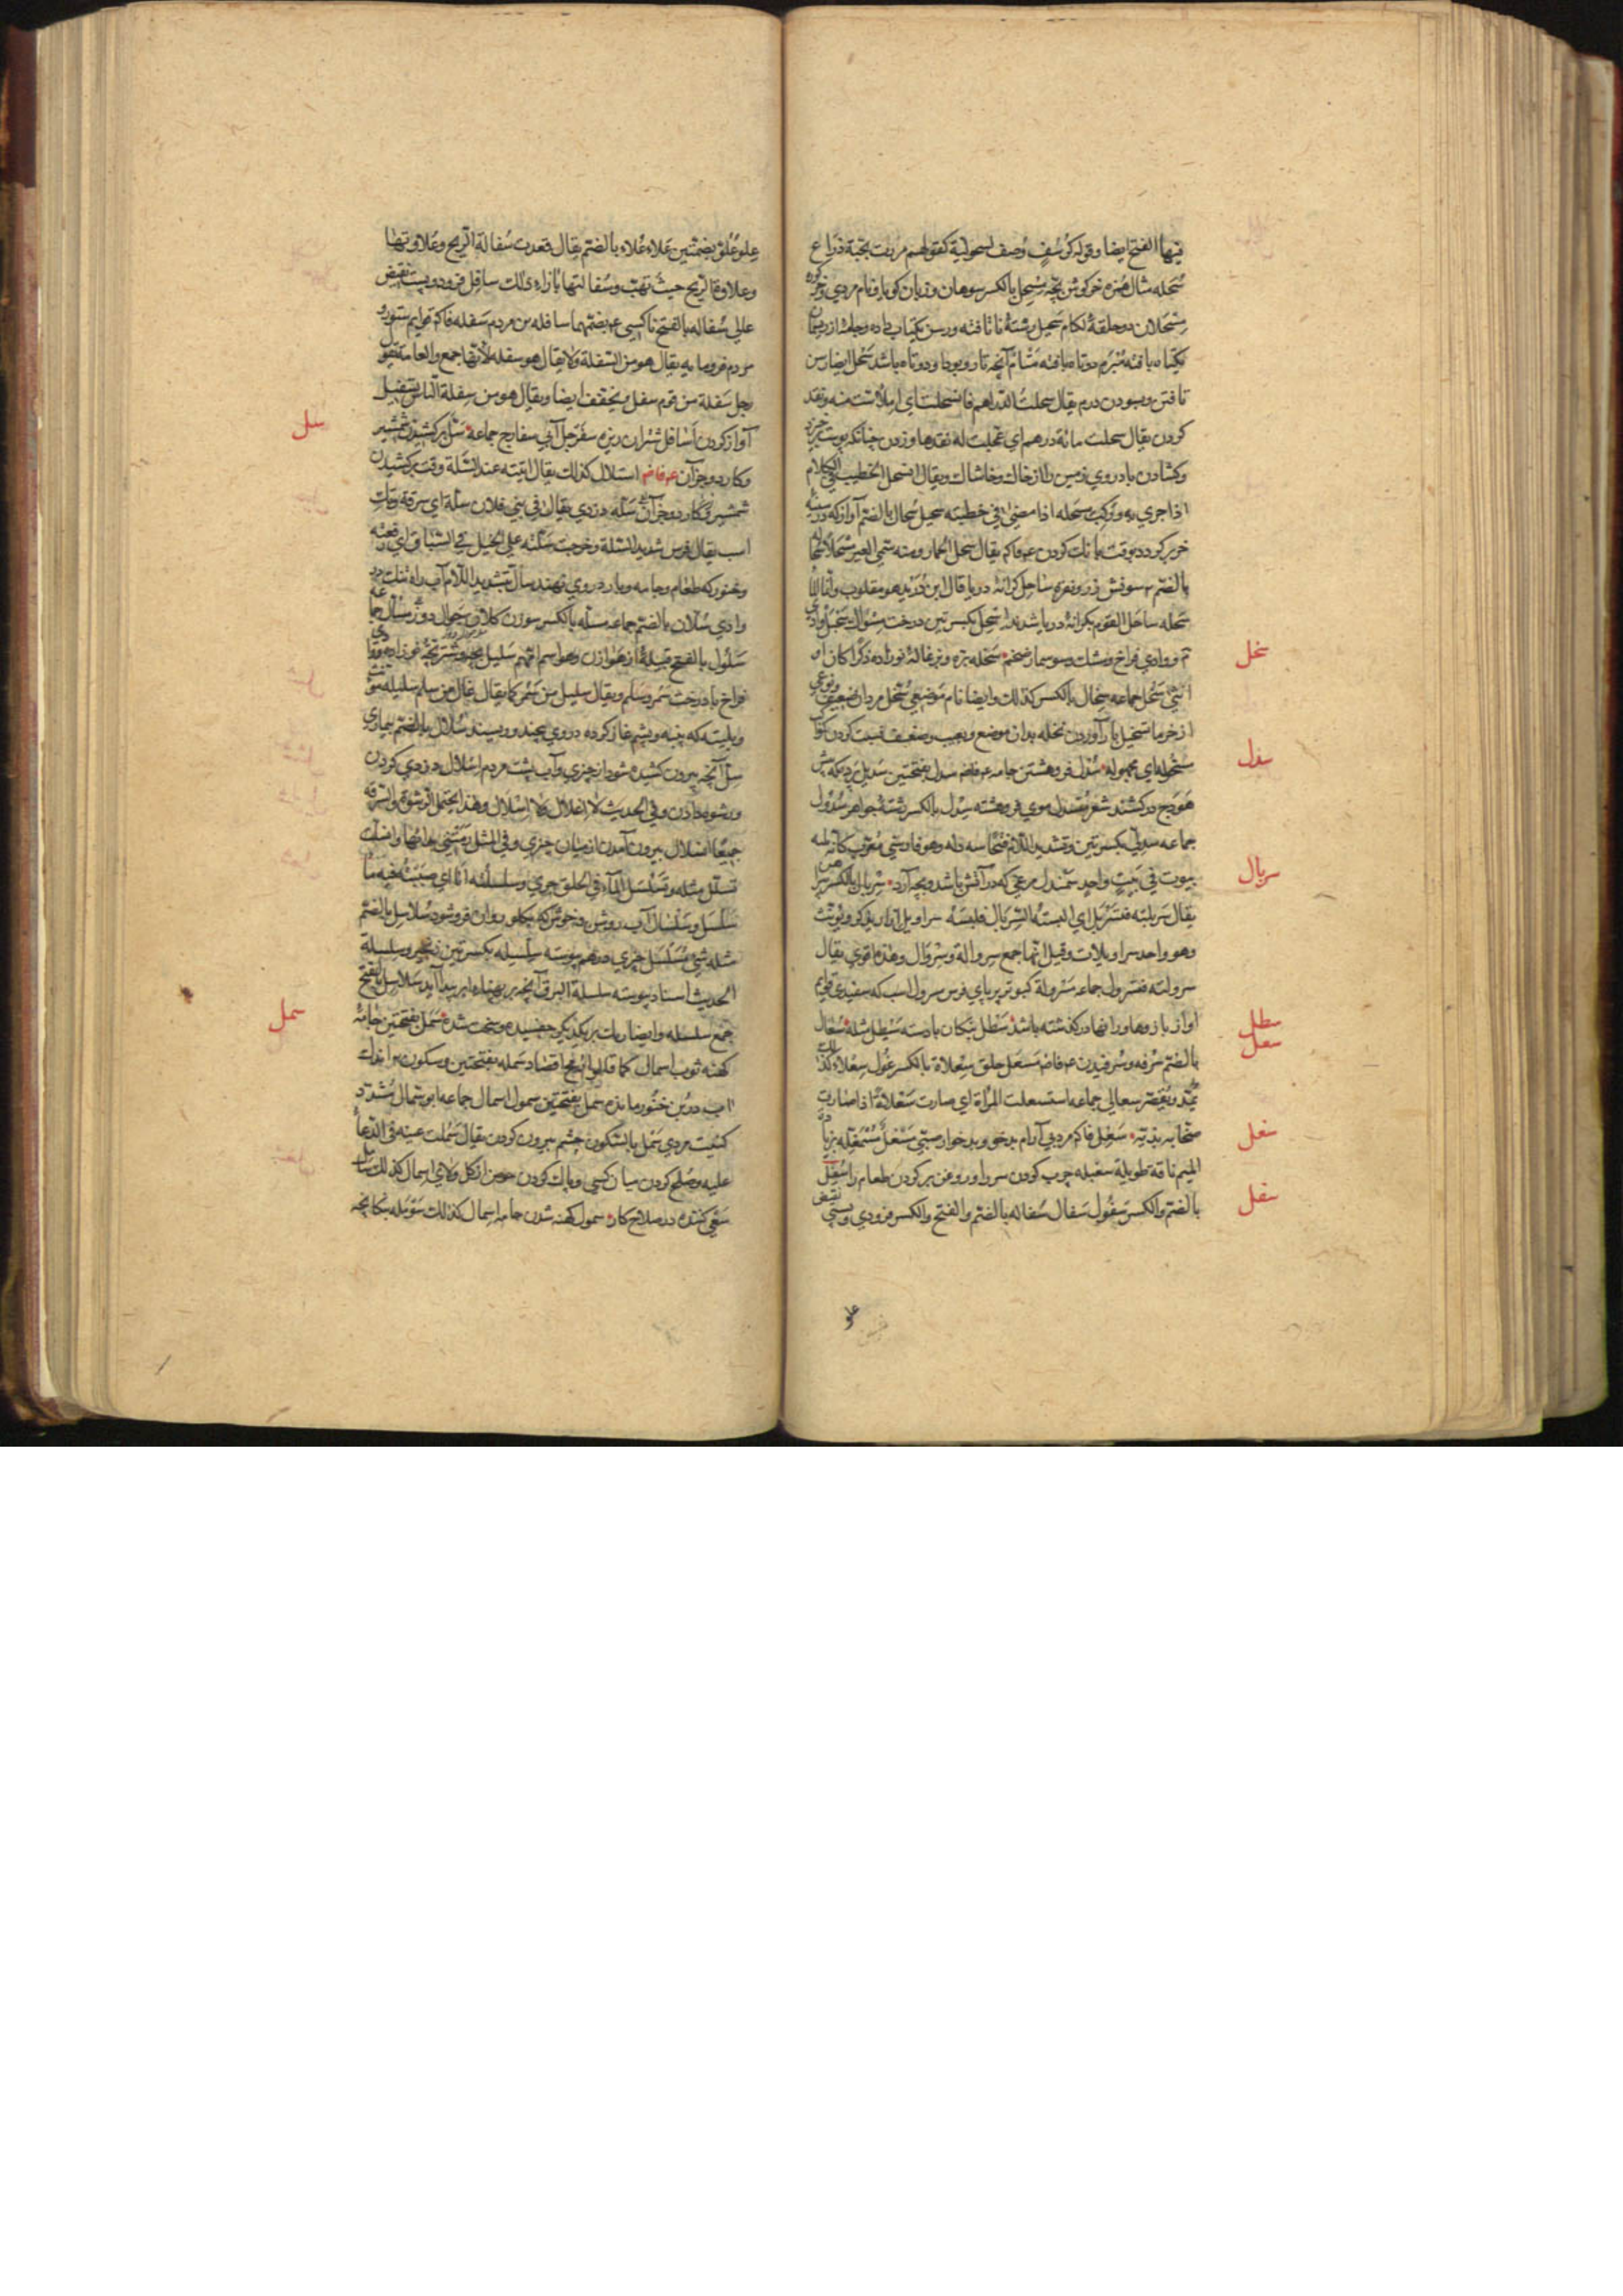 فيها الفتح ايضا وقوله كرسف وصف لسحولية كقولهم مررت بحية ذراع
سحله مثال همزه خركوش بچه مسحل بالكسر سوهان وزبان كويا ونام مردي وخركوره
مسحلان دو حلقهٔ لكام سحيل رشتهٔ ناتافته ورسن يكتاب داده وجامه از ريسمان
يكتاه بافته مبرم دوتاه بافته متام آنچه تار وپود او دوتاه باشد سحل ايضا رسن
تافتن وسودن درم يقال سحلت الدراهم فانسحلت اي املاست منه ونقد
كردن يقال سحلت مائة درهم اي عجلت له نقدها وزدن چنانكه پوست خيزد
وكشادن باد روي زمين را از خاك وخاشاك ويقال انسحل الخطيب في الكلام
اذا جرى به وركب مسحله اذا مضى في خطبته سحيل سحال بالضم آواز كه در سينه
خر بركردد بوقت بانك كردن ع فاك يقال سحل الحمار ومنه سمي العير مسحلا سحاله
بالضم سونش زر ونقره ساحل كرانهٔ دريا قال ابن دريد هو مقلوب وانما الماء
سحله ساحل القوم بكرانهٔ دريا شدند اسحل بكسرتين درخت مسواك سحبل وادي
م ووادي فراخ ومشك وسوسمار ضخم سخله بره وبزغالهٔ نوزاده ذكرا كان او
انثى سخل جماعه سخال بالكسر كذلك وايضا نام موضعي سخل مردان ضعيف ونوعي
از خرما تسخيل بار آوردن نخله بدان موضع وبعيب وضعف نسبت كردن كواكب
مسخوله اي مجهوله سدل فروهشتن جامه ع فاض سدل بفتحتين سديل پرده كه پيش
هودج دركشند شعر منسدل موي فروهشته سدل بالكسر رشتهٔ جواهر سدول
جماعه سدلي بكسرتين وتشديد اللام فتحا سه دله وهو فارسي معرب كانه ثلثه
بيوت في بيت واحد سمندل مرغي كه در آتش باشد وبچه آرد سربال بالكسر پيراهن
يقال سربلته فتسربل اي البسته السربال فلبسه سراويل ازار يذكر ويونث
وهو واحد سراويلات وقيل انها جمع سروالة وسروال وهذه اقوى يقال
سرولته فتسرول جماعه مسرولة كبوتر پر پاي فرس مسرول اسب كه سفيدي قوايم
او از بازوها ورانها دركذشته باشد سطل پنكان بادسته سيطل مثله سعال
بالضم سرفه وسرفيدن ع فاض مسعل حلق سعلاة بالكسر غول سعلاء كذلك
يمد ويقصر سعالي جماعه استسعلت المرأة اي صارت سعلاة اذا صارت
صخابه بذيه سغل فاك مرد بي آرام بدخو وبدخوار
الميم ناقه طويلة سغبله چرب كردن سر را وروغن بركردن طعام را سفل
بالضم والكسر سفول سفال سفاله بالضم والفتح والكسر فرودي وپستي نقيض
علو
سخل
سدل
سربال
سطل
سعل
سغل
سفل
علو علو بضمتين علاء علاء بالضم يقال قعدت سفالة الريح وعلاوتها
وعلاوة الريح حيث تهب وسفالتها بازاء ذلك سافل فرود وپست نقيض
عالي سفاله بالفتح ناكسي ع بضمهما سافله بن مردم سفله فاك قوايم ستور و
مردم فرومايه يقال هو من السفلة ولا يقال هو سفله لانها جمع والعامة تقول
رجل سفلة من قوم سفل ويخفف ايضا ويقال هو من سفلة الناس تسفيل
آواز كردن اسافل شتران ريزه سفرجل آبي سفارج جماعه سل بركشيدن شمشير
وكارد وجز آن ع فاض استلال كذلك يقال اتيته عند السلة وقت بركشيدن
شمشير وكارد وجز آن سله دزدي يقال في بني فلان سلة اي سرقة وتك
اسب يقال فرس شديد السلة وخرجت سلته على الخيل في السباق اي دفعته
وغنوركه طعام وجامه وبار در وي نهند سال بتشديد اللام آب راه تنك در
وادي سلان بالضم جماعه مسله بالكسر سوزن كلان جوال دوز مسال جماعه
سلول بالفتح قبيلهٔ از هوازن وهو اسم امهم سليل بچه وشتر بچهٔ نوزاده ورودي
فراخ بادرخت سمر وسلم ويقال سليل من سمر كما يقال غال من سلم سليله
وپليته كه پنبه وپشم غاز كرده در وي پيچند وريسند سلال بالضم بيماري
سل آنچه بيرون كشيده شود از چيزي وآب پشت مردم اسلال دزدي كردن
ورشوه دادن وفي الحديث لا اغلال ولا اسلال وهذا يحتمل الرشوة والسرقة
جميعا انسلال بيرون آمدن از ميان چيزي وفي المثل رمتني بدائها وانسلت
تسلل مثله وتسلسل الماء في الحلق جرى وسلسلته انا اي صببته فيه
سلسل وسلسال آب روشن وخوش كه بكلو روان فروشود سلاسل بالضم
مثله شيء مسلسل چيزي درهم پيوسته سلسله بكسرتين زنجير وسلسلة
الحديث اسناد پيوسته سلسلة البرق آنچه بر پهناء ابر پيدا آيد سلاسل بالفتح
جمع سلسله وايضا ريك بر يكديكر چفسيده وسخت شده سمل بفتحتين جامهٔ
كهنه ثوب اسمال كما قالوا رمح اقصاد سمله بفتحتين وسكون بر اندك
آب در بن خنور مانده سمل بفتحتين سمول اسمال جماعه ابو سمال مشدد
كنيت مردي سمل بالسكون چشم بيرون كردن يقال سملت عينه في الدعاء
عليه وصلح كردن ميان كسي وپاك كردن حوض از كل ولاي اسمال كذلك سامل
سعي كننده در صلاح كار سمول كهنه شدن جامه اسمال كذلك سوقله پنكانچه
سل
سمل